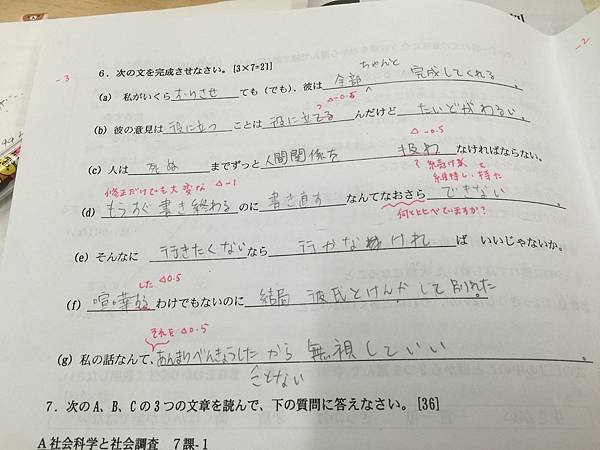 -3
-2
6．次の文を完成させなさい。[3×7=21]
ちゃんと
(a) 私がいくら おりさせ ても（でも）、彼は 全部 完成してくれる 。
つ △-0.5
(b) 彼の意見は 役に立つ ことは 役に立てる んだけど たいどがわるい。
△-0.5
(c) 人は 死ぬ までずっと 人間関係を 扱わ なければならない。
修正だけでも大変な △-1
(d) もうすぐ書き終わる のに 書き直す なんてなおさら できない 。
何と比べていますか？
(e) そんなに 行きたくない なら 行かなければ いいじゃないか。
した △0.5
(f) 喧嘩 わけでもないのに 結局 彼氏とけんかして別れた
それを △0.5
(g) 私の話なんて、あんまりべんきょうした から 無視していい 。
ことない
7．次のA、B、Cの３つの文章を読んで、下の質問に答えなさい。[36]
A 社会科学と社会調査 7課-1